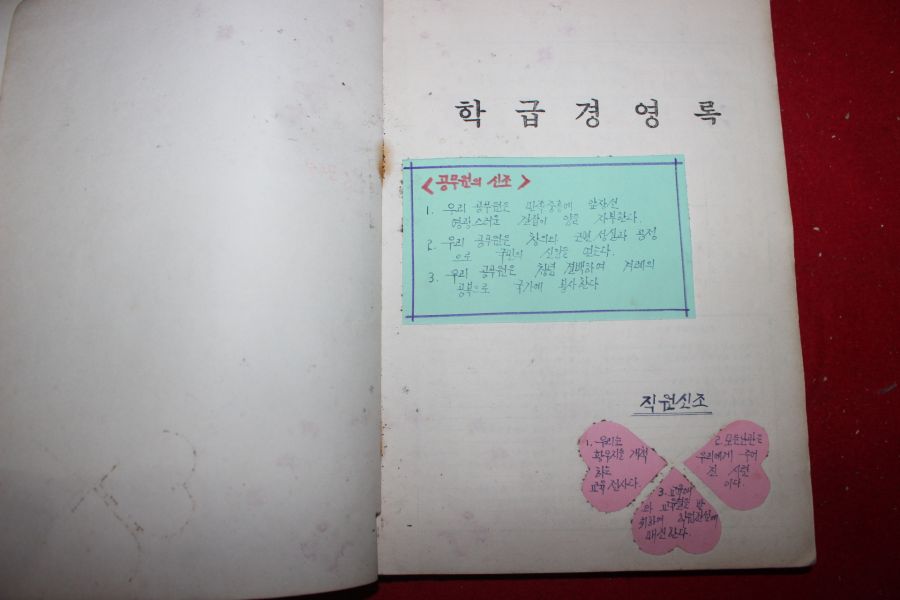 학급경영록
<공무원의 신조>
1. 우리 공무원은 민족중흥에 앞장선
영광스러운 길잡이 임을 자부한다.
2. 우리 공무원은 창의와 공정
으로 국민의 신임을 얻는다.
3. 우리 공무원은 청렴 결백하여 겨레의
공복으로 국가에 봉사한다
직원신조
1. 우리는
황무지를 개척
하는
교육전사다.
2. 모든난관은
우리에게 주어
진 시련
이다.
3. 교육애
와 교육혼을 발
휘하여
매진한다.